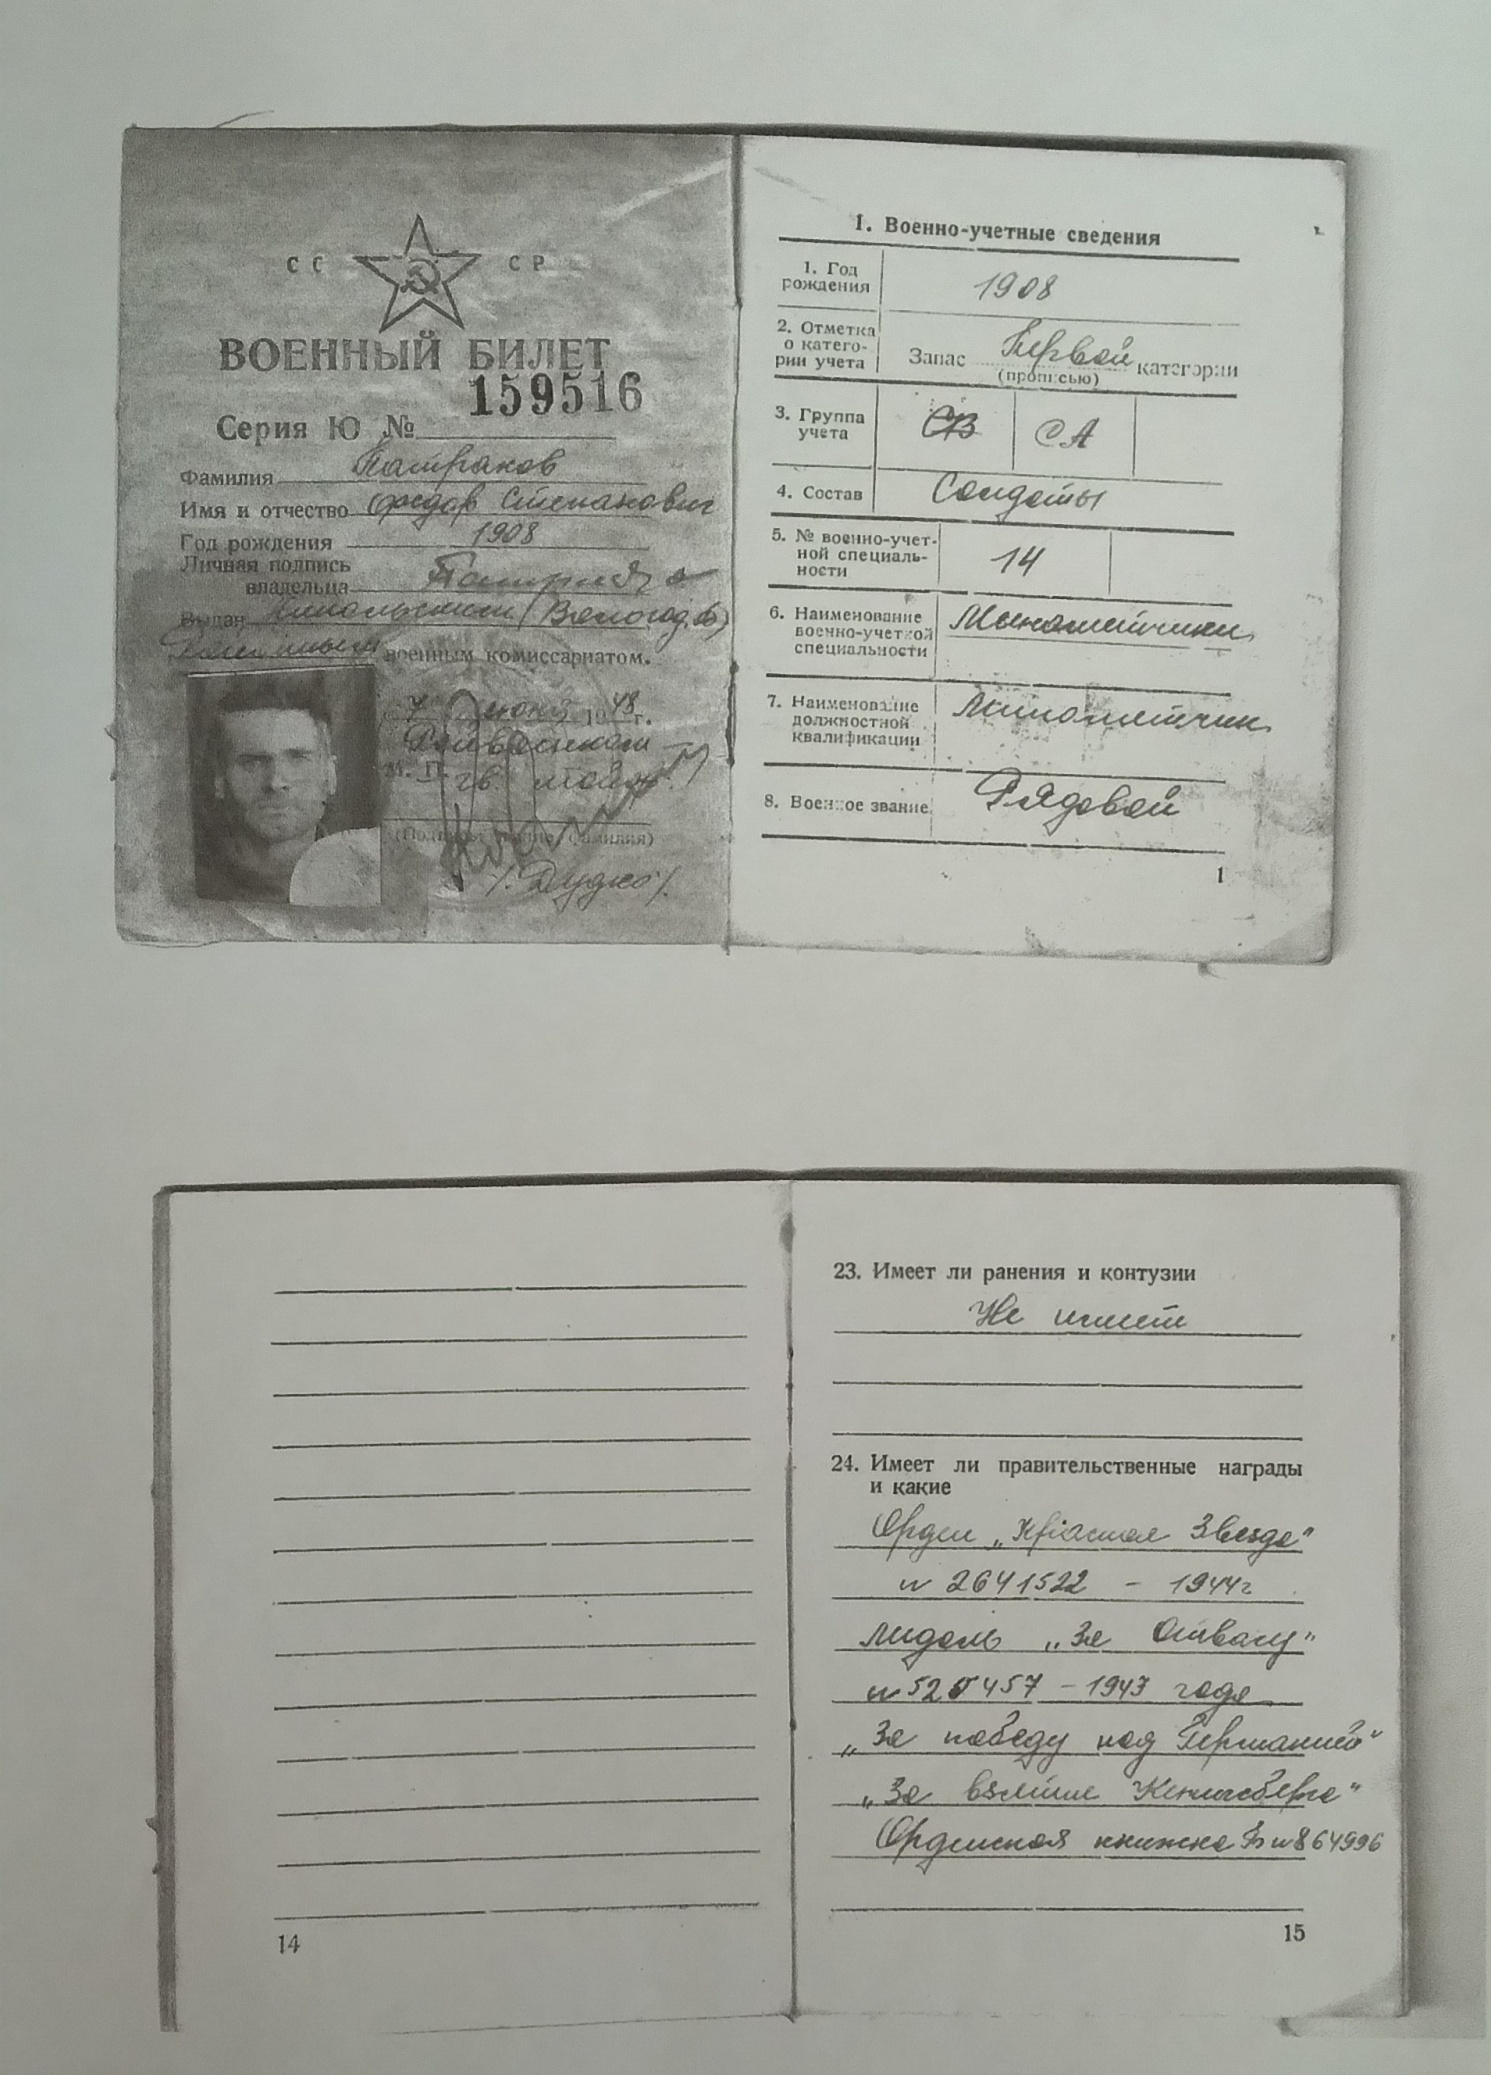 СС СР
ВОЕННЫЙ БИЛЕТ
159516
Серия Ю №
Фамилия Патраков
Имя и отчество Федор Степанович
Год рождения 1908
Личная подпись
владельца
Выдан Никольским (Вологод. о)
военным комиссариатом.
7 июня 1948 г.
М. П. гв. майор
(Подпись, звание, фамилия)
/Дудко/
1. Военно-учетные сведения
1. Год
рождения
1908
2. Отметка
о катего-
рии учета
Запас Первой категории
(прописью)
3. Группа
учета
СВ СА
4. Состав Солдаты
5. № военно-учет-
ной специаль-
ности
14
6. Наименование
военно-учетной
специальности
Минометчики
7. Наименование
должностной
квалификации
Минометчик
8. Военное звание Рядовой
1
14
23. Имеет ли ранения и контузии
Не имеет
24. Имеет ли правительственные награды
и какие
Орден „Красная Звезда"
№ 2641522 - 1944г
медаль „За Отвагу"
№ 525457 - 1943 года
„За победу над Германией"
„За взятие Кенигсберга"
Орденская книжка Б №864996
15